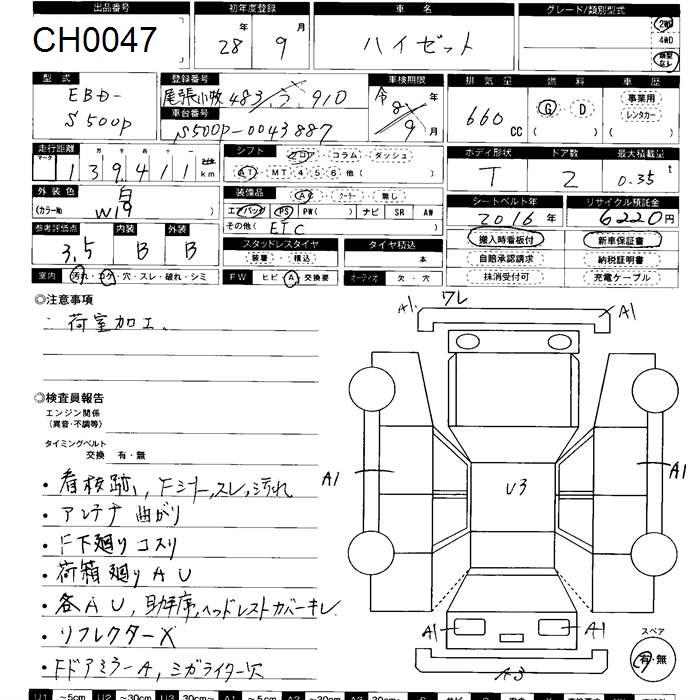 出品番号 初年度登録 車名 グレード/類別型式
CH0047 28年 9月 ハイゼット 2WD
4WD
型式 登録番号 車検期限 排気量 燃料 車歴
EBD-
S500P
尾張小牧 483 910 令8年
9月
車台番号
S500P-0043887
660cc G D
事業用
レンタカー
走行距離 シフト ボディ形状 ドア数 最大積載量
マーク 十万 万 千 百 十 一
139411 km
フロア コラム ダッシュ
AT MT 4 5 6 他( )
T 2 0.35t
外装色 装備品 シートベルト年 リサイクル預託金
白
(カラーNo. W19 )
AC クーラー 無し
エアバッグ PS PW( ) ナビ SR AW
その他( ETC )
2016年 6220円
参考評価点 内装 外装
3.5 B B
搬入時看板付 新車保証書
自賠承認請求 納税証明書
抹消受付可 充電ケーブル
スタッドレスタイヤ タイヤ積込
装着 積込 本
室内 汚れ・コゲ・穴・スレ・破れ・シミ FW ヒビ A 交換要 オーディオ 欠・穴
◎注意事項
・荷室加工、
A1 ワレ A1
◎検査員報告
エンジン関係
(異音・不調等)
タイミングベルト
交換 有・無
・看板跡、Fシート、スレ、汚れ
・アンテナ曲がり
・F下廻りコスリ
・荷箱廻りAU
・各AU、助手席、ヘッドレストカバーキレ
・リフレクターX
・FドアミラーA、シガライター欠
A1 U3 A1
A1 A1
A3
スペア
有・無